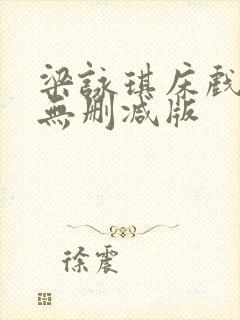 梁詠琪床戲
無刪減版
徐震